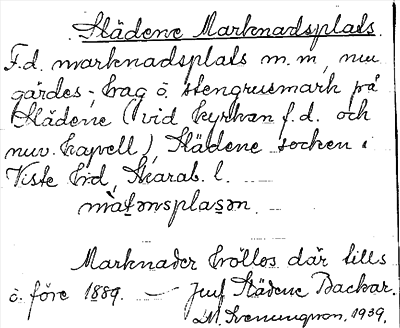 Slädene Marknadsplats.
F.d. marknadsplats m.m, nu
gärdes-, hag o. stengrusmark på
Slädene (vid kyrkan f.d. och
nuv. kapell), Slädene socken i
Viste hd, Skarab. l.
Marknader höllos där tills
o. före 1889. — Jmf Slädene Backar.
1939.